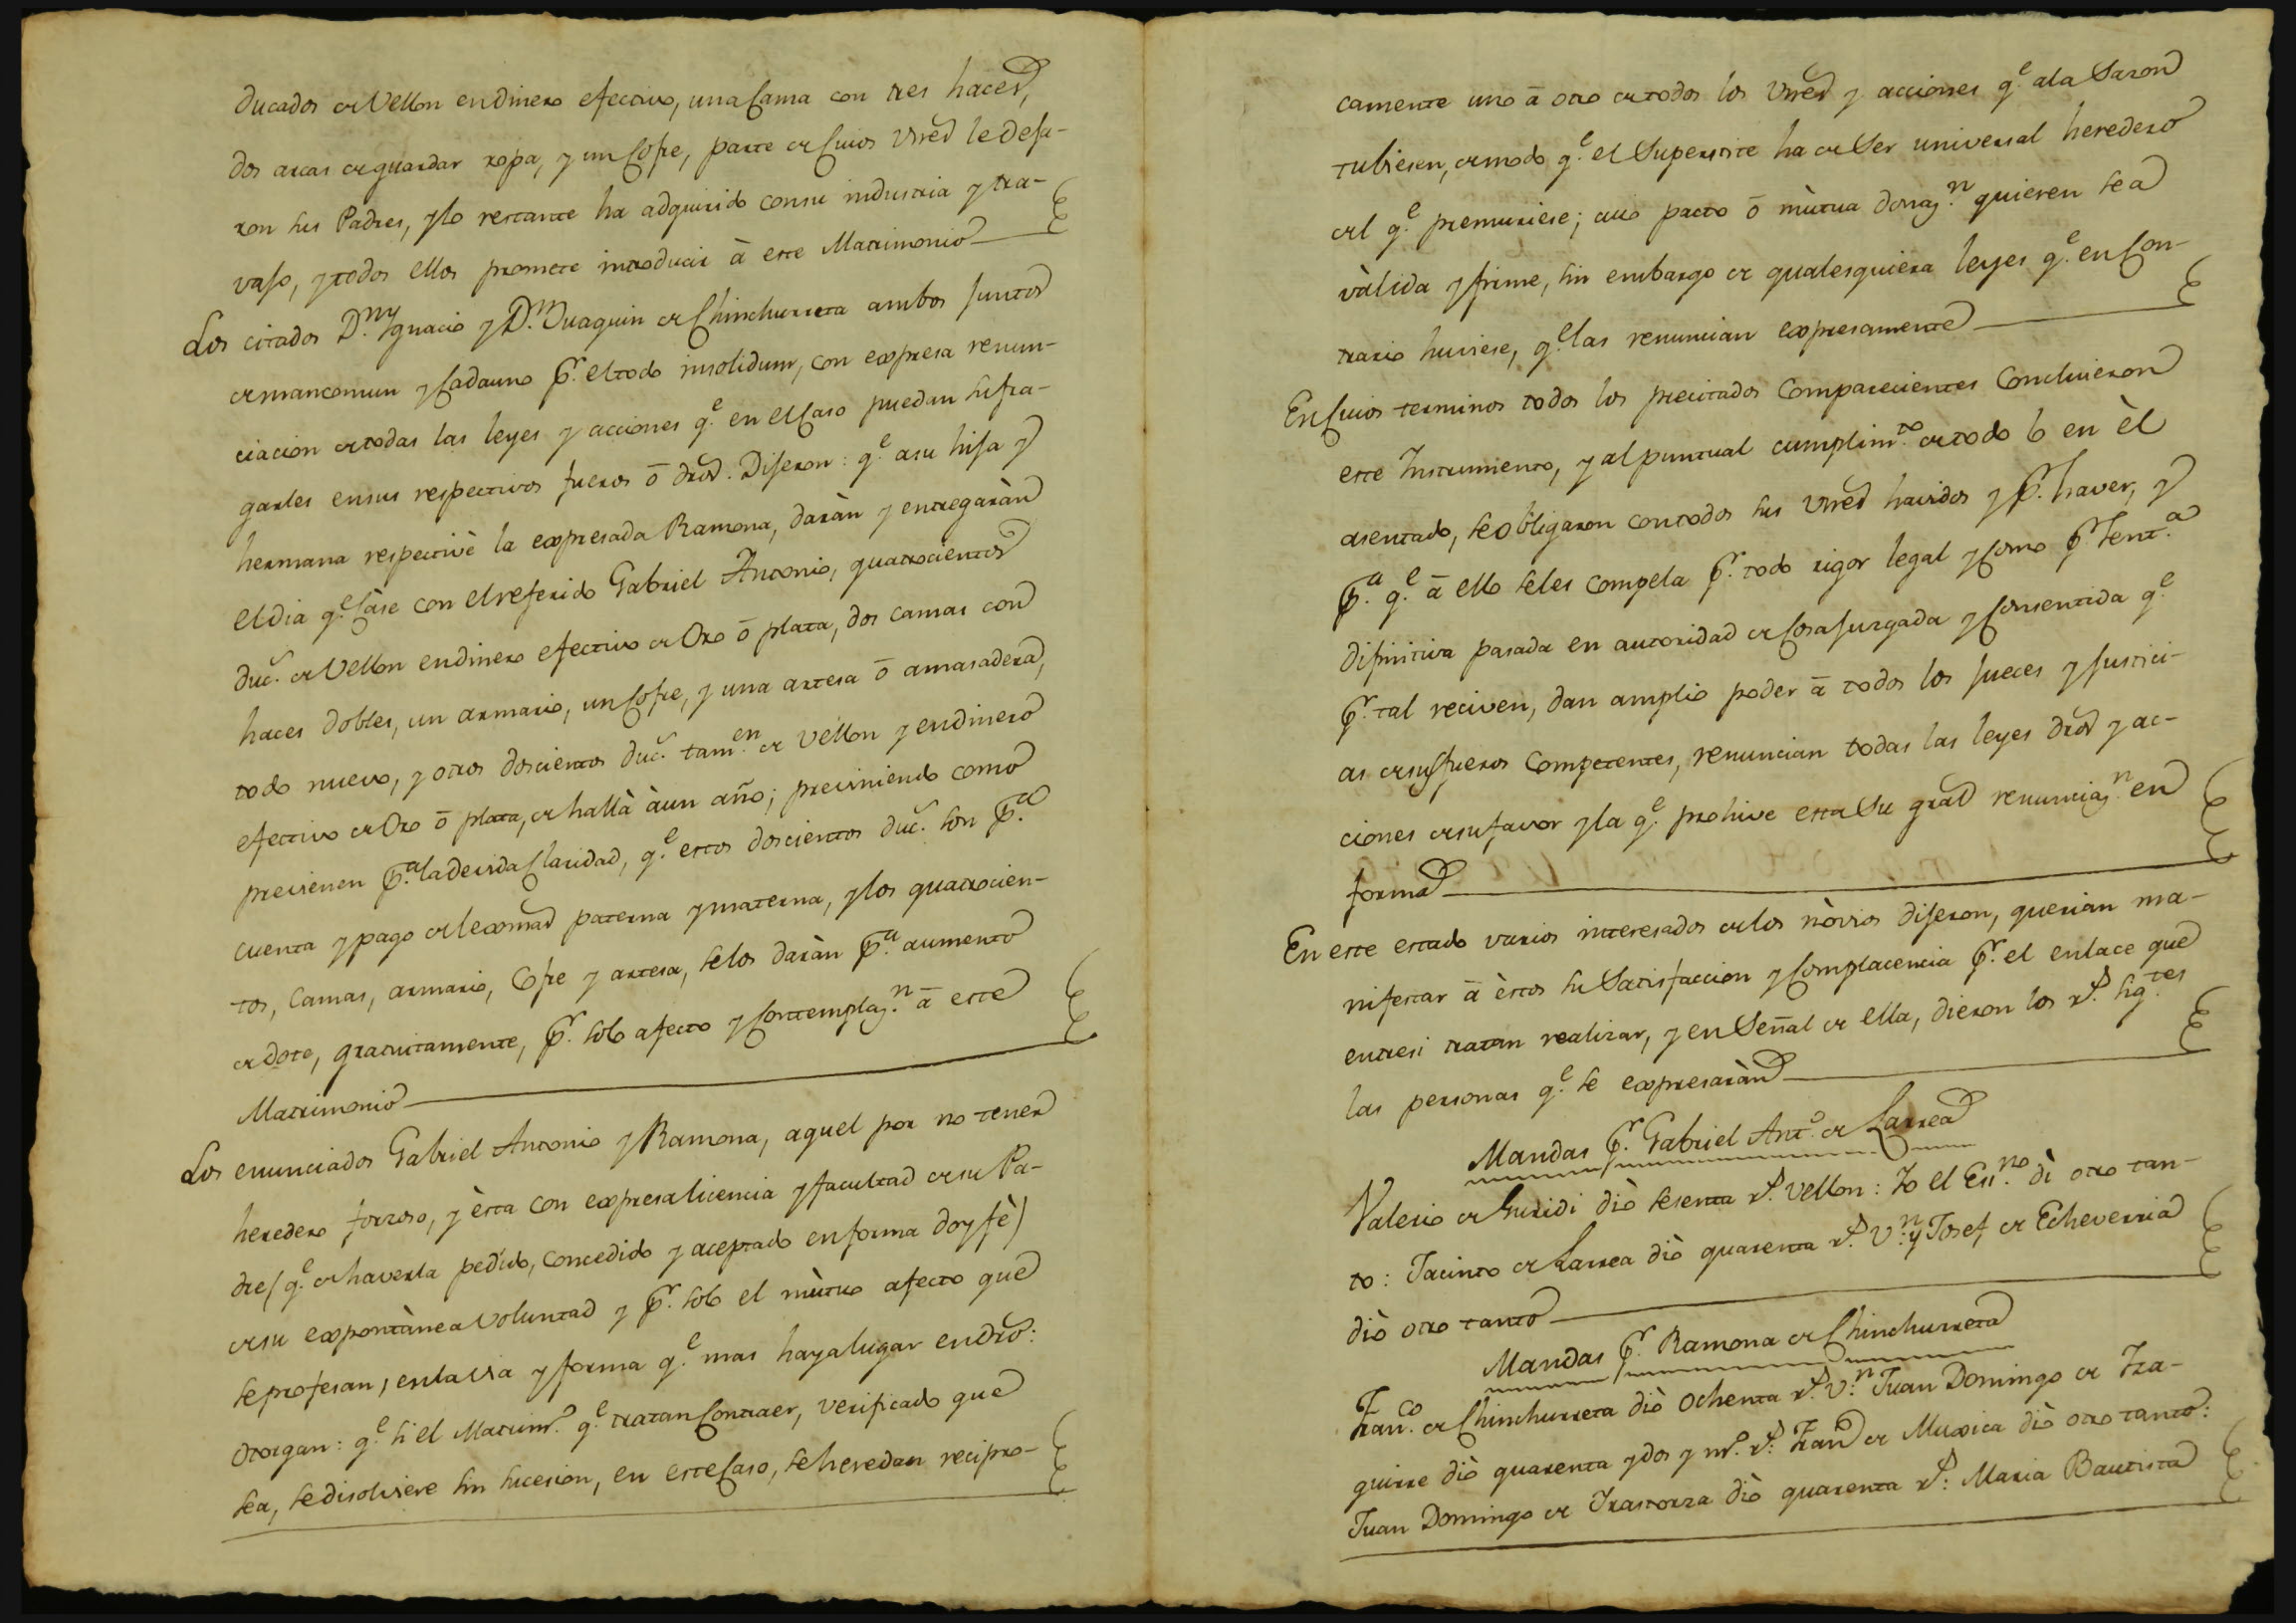 ducados de Vellon en dinero efectivo, una Cama con tres haces,
dos arcas de guardar ropa, y un Cofre, parte de Cuios Vnes le deja-
ron sus Padres, y lo restante ha adquirido con su industria y tra-
vajo, y todos ellos promete introducir à este Matrimonio
Los citados D.n Ygnacio y D.n Juaquin de Chinchurreta ambos juntos
de mancomun y Cada uno p.r el todo insolidum, con expresa renun-
ciacion de todas las leyes y acciones q.e en el Caso puedan sufra-
garles en sus respectivos fueros ō dros. Dijeron: q.e a su hija y
hermana respectivè la expresada Ramona, daràn y entregaràn
el dia q.e Càse con el referido Gabriel Antonio, quatrocientos
duc.s de Vellon en dinero efectivo de Oro ō plata, dos camas con
haces dobles, un armario, un Cofre, y una artesa ō amasadera,
todo nuevo, y otros doscientos duc.s tam.en de vellon y en dinero
efectivo de Oro ō plata, de hallà à un año; previniendo como
previenen p.a la devida Claridad, q.e estos doscientos duc.s son p.a
cuenta y pago de lexmas paterna y materna, y los quatrocien-
tos, Camas, armario, Cofre y artesa, se los daràn p.a aumento
de dote, gratuitamente, p.r solo afecto y Contemplaz.n ā este
Matrimonio
Los enunciados Gabriel Antonio y Ramona, aquel por no tener
heredero forzoso, y èsta con expresa licencia y facultad de su Pa-
dre (q.e de haverla pedido, concedido y aceptado en forma doy fè)
de su expontànea Voluntad y p.r solo el mùtuo afecto que
se profesan, en la via y forma q.e mas haya lugar en dro:
Otorgan: q.e si el Matrim.o q.e tratan Contraer, verificado que
sea, se disolviere sin sucesion, en este Caso, se heredan recipro-
camente uno ā otro de todos los Vnes y acciones q.e a la Sazon
tubiesen, de modo q.e el Superstite ha de Ser universal heredero
del q.e premuriese; cuio pacto ō mùtua donaz.n quieren sea
vàlida y firme, sin embargo de qualesquiera leyes q.e en Con-
trario huviese, q.e las renuncian expresamente
En Cuios terminos todos los precitados Comparecientes Concluieron
este Instrumento, y al puntual cumplim.to de todo lo en èl
asentado, se obligaron con todos sus Vnes havidos y p.r haver, y
p.a q.e ā ello se les compela p.r todo rigor legal y Como p.r Sent.a
difinitiva pasada en autoridad de Cosa juzgada y Consentida q.e
p.r tal reciven, dan amplio poder ā todos los jueces y justici-
as de sus fueros Competentes, renuncian todas las leyes dros y ac-
ciones de su favor y la q.e prohive esta Su gral renunciaz.n en
forma
En este estado varios interesados de los nòvios dijeron, querian ma-
nifestar ā èstos su Satisfaccion y Complacencia p.r el enlace que
entre si tratan realizar, y en Señal de ella, dieron los r.s sig.tes
las personas q.e se expresaràn
Mandas p.r Gabriel Ant.o de Larrea
Valerio de Guridi diò sesenta r.s vellon: Yo el Es.no dì otro tan-
to: Jacinto de Larrea diò quarenta r.s v.n y Josef de Echeverria
diò otro tanto
Mandas p.r Ramona de Chinchurreta
Fran.co de Chinchurreta diò Ochenta r.s v.n Juan Domingo de Yza-
guirre diò quarenta y dos y m.o r.s: Fran.co de Muxica diò otro tanto:
Juan Domingo de Yrastorza diò quarenta r.s: Maria Bautista